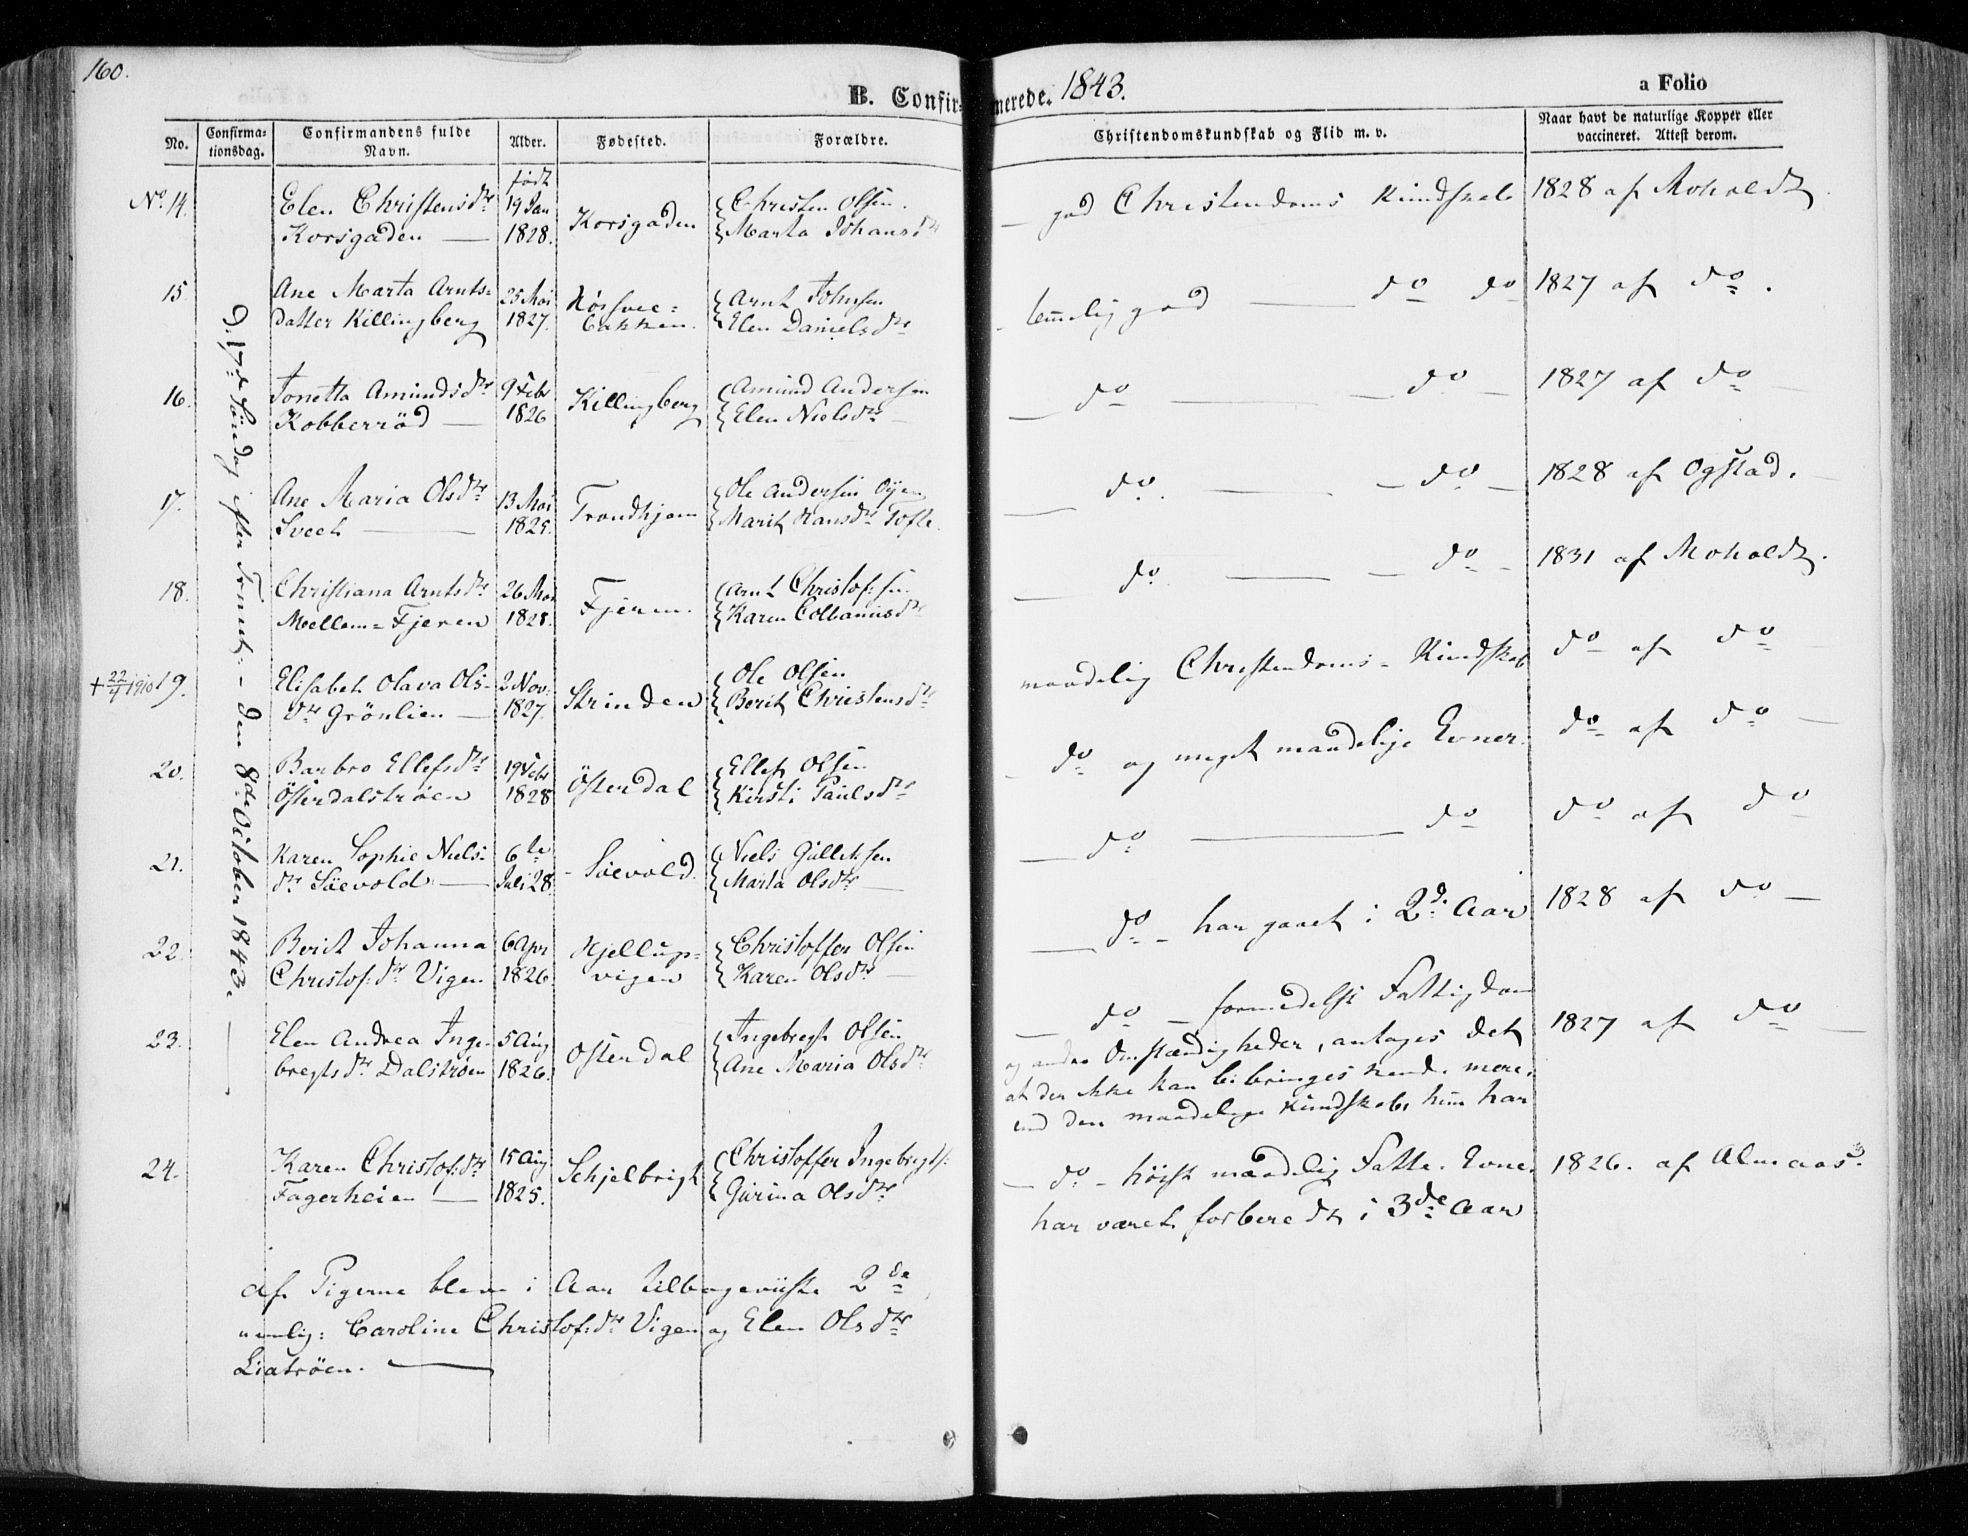 160.
B. Confirmerede. 1843.
a Folio
No.
Confirma-
tionsdag.
Confirmandens fulde
Navn.
Alder.
Fødested.
Forældre.
Christendomskundskab og Flid m. v.
Naar havt de naturlige Kopper eller
vaccineret. Attest derom.
D. 17de Søndag efter Trinit: - den 8de October 1843.
født
No. 14. Elen Christensdtr 19 Jan Korsgaden Christen Olsen. god Christendoms Kundskab 1828 af Moholdt.
Korsgaden — 1828. Marta Johansdtr
15. Ane Marta Arnts= 25 Mai Arnt Johnsen temelig god — do do 1827 af do.
datter Killingberg 1827. bakken. Elen Danielsdtr
16. Jonetta Amundsdtr 9 Febr Killingberg Amund Andersen — do — do — 1827 af do —
Kobberrød — 1826 Elen Nielsdtr —
17. Ane Maria Olsdtr 13 Mai Trondhjem Ole Andersen Øyen — do. — do — 1828 af Ogstad. —
Sveet — 1825. Marit Hansdtr Tofte.
18. Christiana Arntsdtr 26 Mai Fjeren. Arnt Christof:sen — do. — do — 1831 af Moholdt.
Mellem=Fjeren 1828. Karen Colbanusdtr
+ 22/4 1910 19. Elisabet Olava Ols- 2 Nov: Strinden Ole Olsen maadelig Christendoms-Kundskab do af do —
dtr Grönlien — 1827. Berit Christensdtr
20. Barbro Ellefsdtr 19 Febr Østerdal Ellef Olsen — do og meget maadelige Evner. do af do —
Østerdalstrøen 1828 Kirsti Paulsdtr
21. Karen Sophie Niels- 6te - Søevold. Niels Gulleksen — do — do do af do
dtr Söevold — Juli 28. Marta Olsdtr —
22. Berit Johanna 6 Apr Hjellup= Christoffer Olsen — do - har gaaet i 2d. Aar 1828 af do —
Christof:dtr Vigen 1826. vigen Karen Olsdtr —
23. Elen Andrea Inge- 5 Aug Østerdal Ingebregt Olsen — do — formedelst Fattigdom 1827 af do —
bregtsdtr Dalstrøen 1826. Ane Maria Olsdtr og andre Omstændigheder, antages det
at der ikke kan bibringes hende mere,
end den maadelige Kundskab, hun har
24. Karen Christof:dtr 15 Aug Schjelbrigt Christoffer Ingebrigts: — do - höist maadelig Fatte-Evne. 1826. af Almaas.
Fagerheien — 1825. Gurina Olsdtr har været forberedt i 3de Aar
Af Pigerne bleve i Aar tilbageviiste 2de
nemlig: Caroline Christof:dtr Vigen og Elen Olsdtr
Liatrøen. —